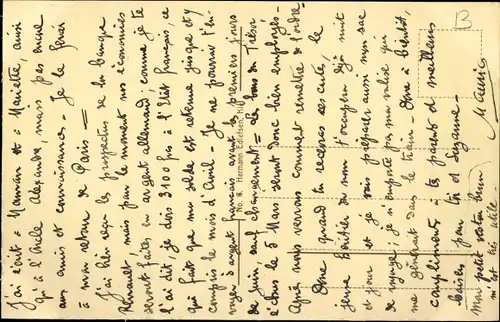 J'ai écrit à Maman et à Mariette, ainsi
qu'à l'Oncle Alexandre, mais pas encore
aux amis et connaissances. Je le ferai
à mon retour de Paris =
J'ai bien reçu les prospectus de la banque
Renault mais pour le moment nos économies
seront faites en argent allemand; comme je te
l'ai dit, je dois 3100 frs à l'Etat français, ce
qui fait que ma solde est retenue jusque et y
compris le mois d'Avril. Je ne pourrai t'en-
voyer d'argent français avant les premiers jours
de juin sauf changement = les bons du Trésor
échus le 5 Mars seront donc bien employés.
Après nous verrons comment remettre de l'ordre.
Donc quand tu recevras ces cartes, le
jeune héritier du nom t'occupera déjà nuit
et jour et je vais préparer aussi mon sac
de voyage; je n'emporte pas ma valise qui
me gênerait dans le train. Donc à bientôt,
compliments à tes parents et meilleurs
baisers pour toi et Suzanne.
Maurice
mon petit
B
No. Hermann Edlefsen,